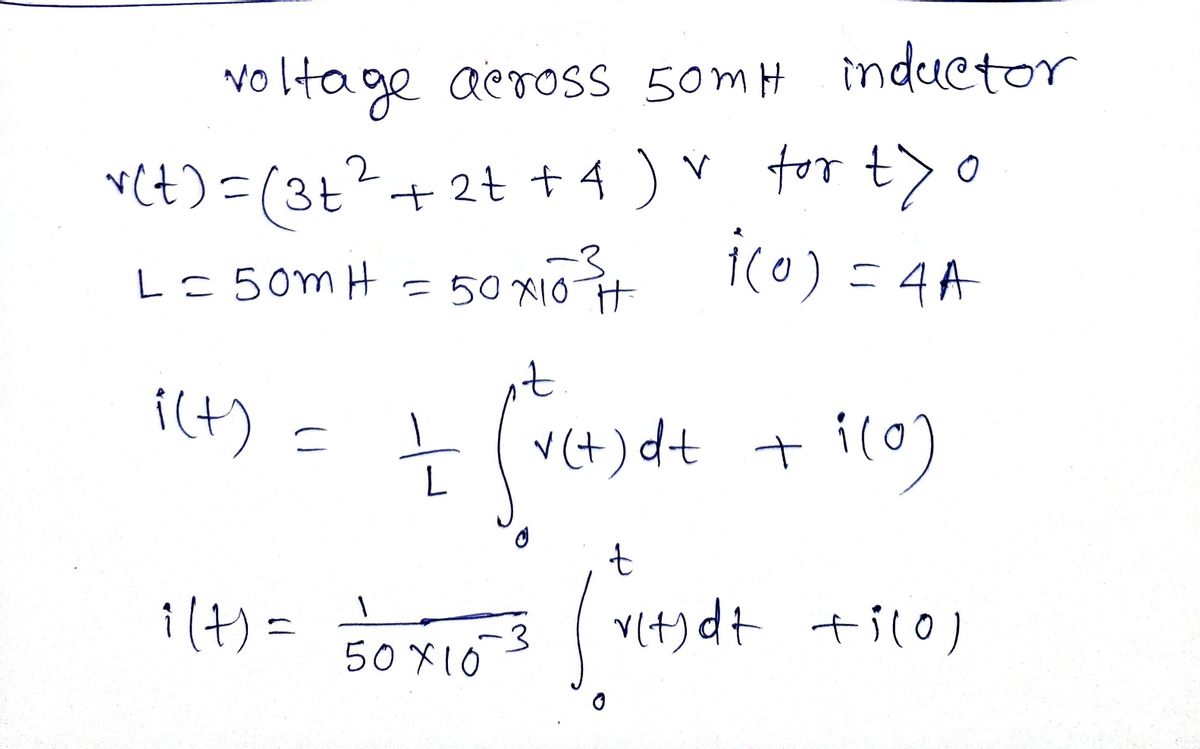 voltage across 50mH inductor
v(t) = (3t² + 2t + 4) v for t > 0
L = 50mH = 50×10⁻³H i(0) = 4A
i(t) = 1/L ∫₀ᵗ v(t)dt + i(0)
i(t) = 1/(50×10⁻³) ∫₀ᵗ v(t)dt + i(0)